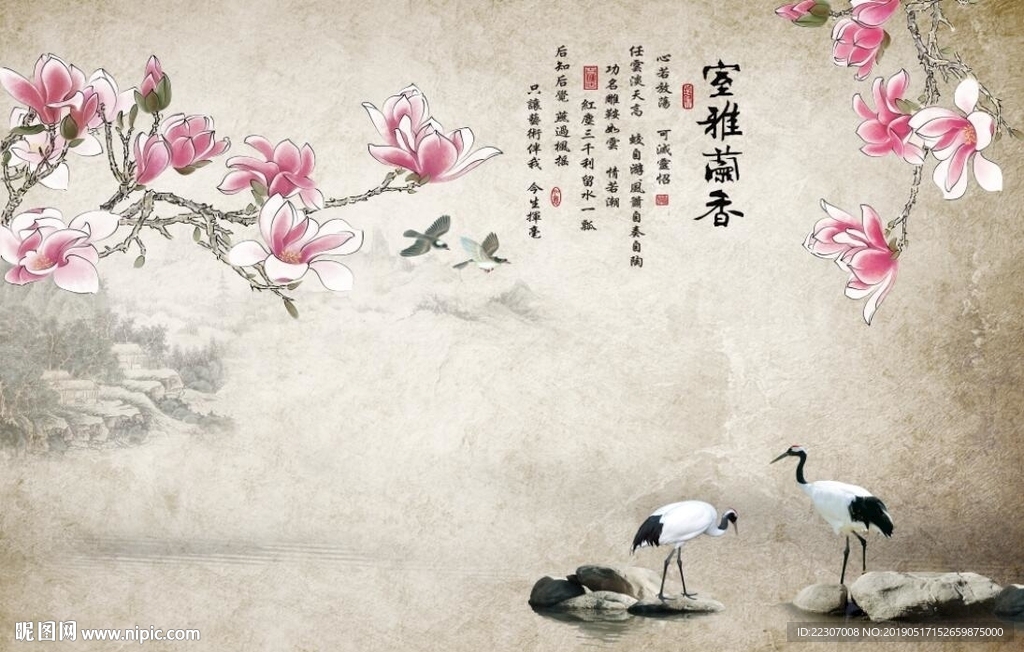 室雅蘭香
心若放蕩 可減靈怊
任雲淡天高 蛟自游風蕭自奏自陶
功名雕鞍如雲 情若潮
紅塵三千利留水一瓢
后知后覺 蕉過楓搖
只讓藝術伴我 今生揮毫
昵图网 www.nipic.com
ID:22307008 NO:20190517152659875000